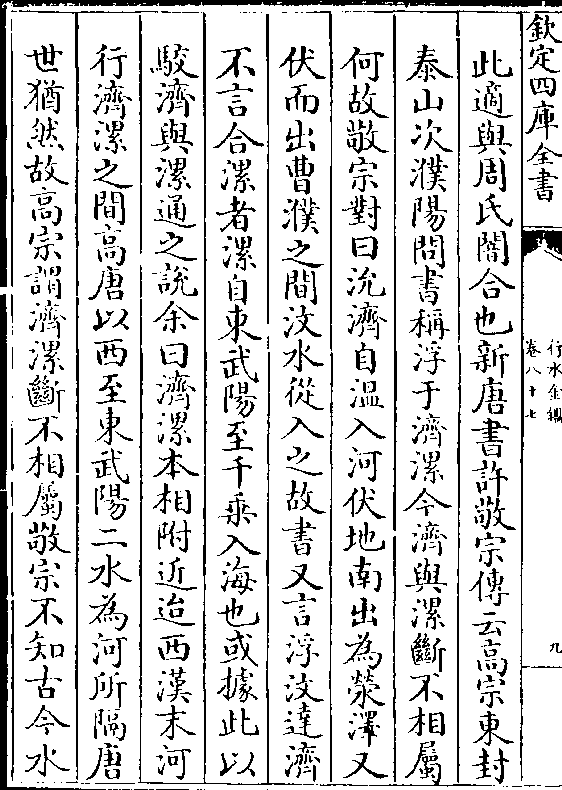 欽定四庫全書
行水金鑑
卷八十七
九
此適與周氏闇合也新唐書許敬宗傳云高宗東封
泰山次濮陽問書稱浮于濟漯今濟與漯斷不相屬
何故敬宗對曰沇濟自溫入河伏地南出為滎澤又
伏而出曹濮之間汶水從入之故書又言浮汶達濟
不言合漯者漯自東武陽至千乗入海也或據此以
駮濟與漯通之説余曰濟漯本相附近迨西漢末河
行濟漯之間高唐以西至東武陽二水為河所隔唐
世猶然故高宗謂濟漯斷不相屬敬宗不知古今水